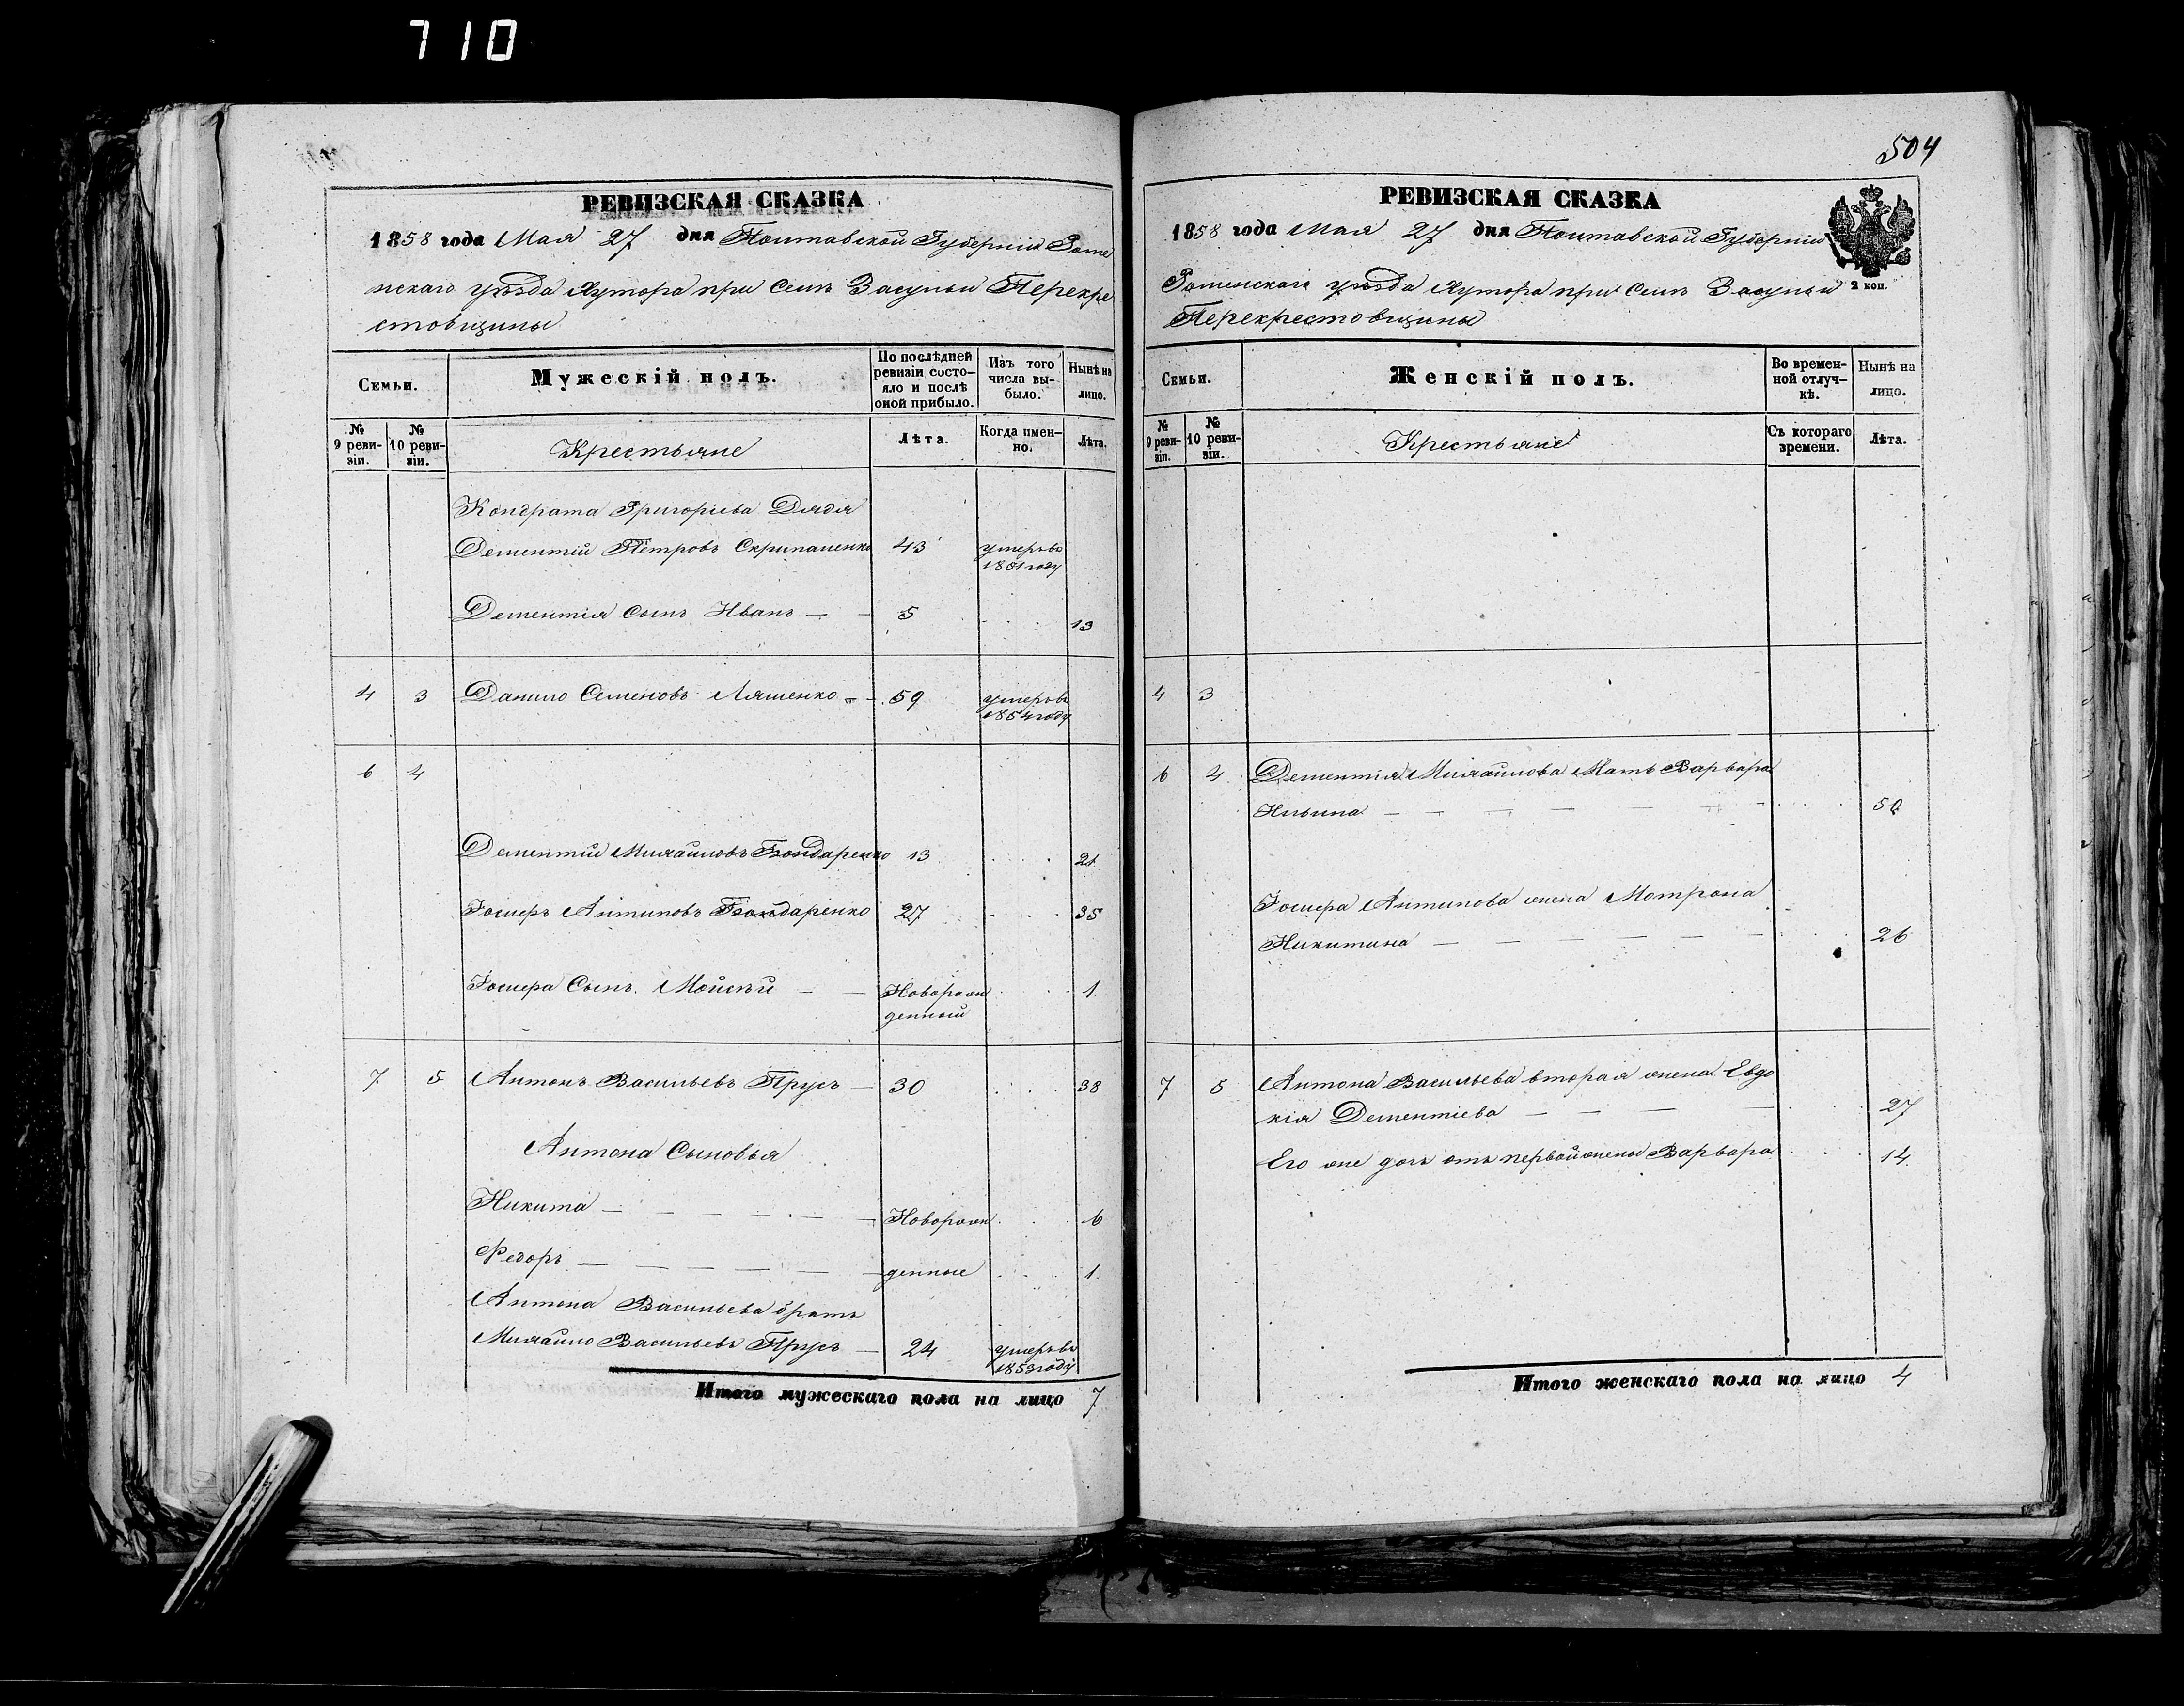 710
РЕВИЗСКАЯ СКАЗКА
1858 года Мая 27 дня Полтавской Губерніи Роме
нскаго уѣзда Хутора при Селѣ Засульи Перекре
стовщины
Семьи.
Мужескій полъ.
По послѣдней ревизіи состояло и послѣ оной прибыло.
Изъ того числа выбыло.
Нынѣ на лицо.
№ 9 ревизіи.
№ 10 ревизіи.
Крестьяне
Лѣта.
Когда именно.
Лѣта.
Кондрата Григоріева Дядя
Дементій Петровъ Скрипаленко 43 умеръ въ
1851 году
Дементія Сынъ Иванъ — — 5 13
4 3 Данило Семеновъ Ляшенко — — 59 умеръ въ
1854 году
6 4
Дементій Михайловъ Бондаренко 13 21
Іосифъ Антиповъ Бондаренко 27 35
Іосифа Сынъ Мойсѣй — — Новорож 1
денный
7 5 Антонъ Васильевъ Прусъ — 30 38
Антона Сыновья
Никита — — — — — — Новорож 6
Федоръ — — — — — — денные 1
Антона Васильева братъ
Михайло Васильевъ Прусъ — 24 умеръ въ
1853 году
Итого мужескаго пола на лицо 7
504
РЕВИЗСКАЯ СКАЗКА
1858 года Мая 27 дня Полтавской Губерніи
Роменскаго уѣзда Хутора при Селѣ Засульи
2 коп.
Перекрестовщины
Семьи.
Женскій полъ.
Во временной отлучкѣ.
Нынѣ на лицо.
№ 9 ревизіи.
№ 10 ревизіи.
Крестьяне
Съ котораго времени.
Лѣта.
4 3
6 4 Дементія Михайлова Мать Варвара
Ильина — — — — — — — 50
Іосифа Антипова жена Мотрона
Никитина — — — — — — 26
7 5 Антона Васильева вторая жена Евдо
кія Дементіева — — — — 27
Его же дочь отъ первой жены Варвара 14
Итого женскаго пола на лицо 4